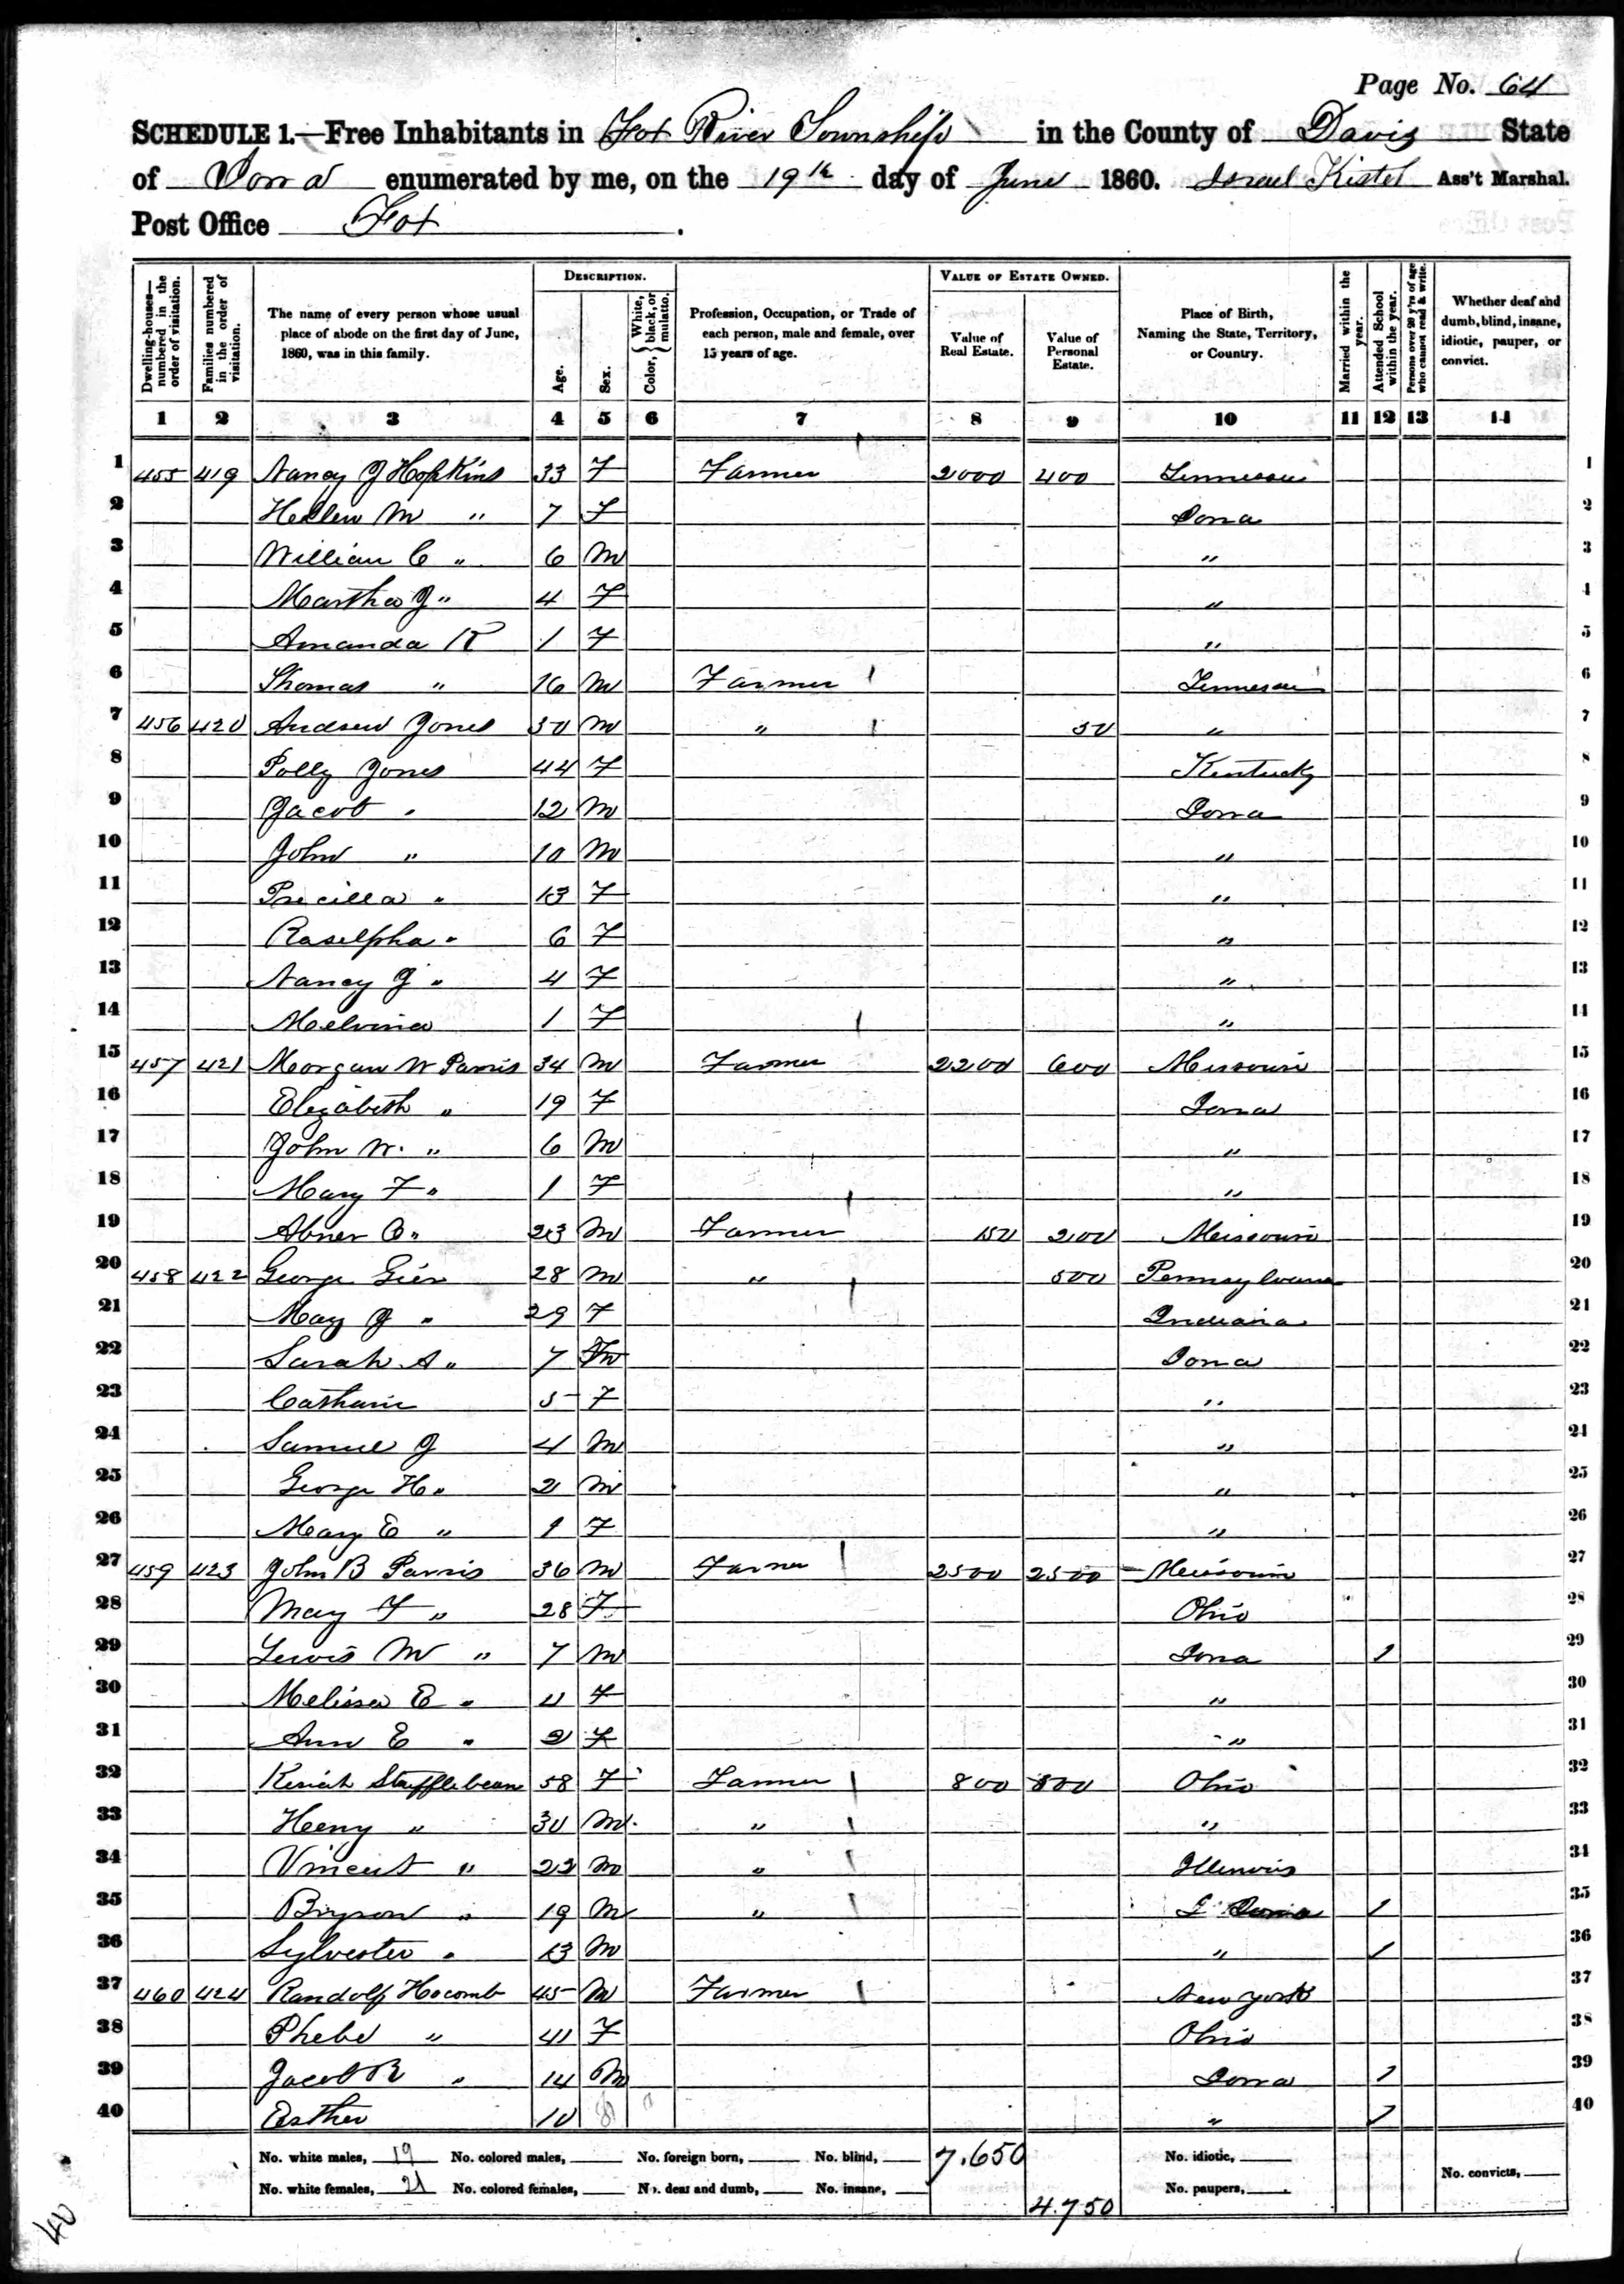 Page No. 64
SCHEDULE 1.—Free Inhabitants in Fox River Township in the County of Davis State
of Iowa enumerated by me, on the 19th day of June 1860. Israel Kister Ass't Marshal.
Post Office Fox.
Dwelling-houses—numbered in the order of visitation.
Families numbered in the order of visitation.
The name of every person whose usual place of abode on the first day of June, 1860, was in this family.
DESCRIPTION.
Age.
Sex.
Color, { White, black, or mulatto.
Profession, Occupation, or Trade of each person, male and female, over 15 years of age.
VALUE OF ESTATE OWNED.
Value of Real Estate.
Value of Personal Estate.
Place of Birth, Naming the State, Territory, or Country.
Married within the year.
Attended School within the year.
Persons over 20 y'rs of age who cannot read & write.
Whether deaf and dumb, blind, insane, idiotic, pauper, or convict.
1 2 3 4 5 6 7 8 9 10 11 12 13 14
1 455 419 Nancy J Hopkins 33 F Farmer 2000 400 Tennessee 1
2 Hellen M " 7 F Iowa 2
3 William C " 6 M " 3
4 Martha J " 4 F " 4
5 Amanda K 1 F " 5
6 Thomas " 16 M Farmer Tennessee 6
7 456 420 Andrew Jones 30 M " 50 " 7
8 Polly Jones 44 F Kentucky 8
9 Jacob " 12 M Iowa 9
10 John " 10 M " 10
11 Precilla " 13 F " 11
12 Raselpha " 6 F " 12
13 Nancy J " 4 F " 13
14 Melvina 1 F " 14
15 457 421 Morgan W Parris 34 M Farmer 2200 600 Missouri 15
16 Elizabeth " 19 F Iowa 16
17 John W. " 6 M " 17
18 Mary F " 1 F " 18
19 Abner O " 23 M Farmer 150 200 Missouri 19
20 458 422 George Gier 28 M " 500 Pennsylvania 20
21 Mary J " 29 F Indiana 21
22 Sarah A " 7 Iowa 22
23 Catharie 5 F " 23
24 Samuel J 4 M " 24
25 George H " 2 M " 25
26 Mary E " 1 F " 26
27 459 423 John B Parris 36 M Farmer 2500 2500 Missouri 27
28 Mary F " 28 F Ohio 28
29 Lewis M " 7 M Iowa 1 29
30 Melissa E " 4 F " 30
31 Ann E " 2 F " 31
32 Keziah Stufflebeane 58 F Farmer 800 500 Ohio 32
33 Henry " 30 M " " 33
34 Vincent " 22 M " Illinois 34
35 Bryson " 19 M " Iowa 1 35
36 Sylvester " 13 M " 1 36
37 460 424 Randolf Hocomb 45 M Farmer New York 37
38 Phebe " 41 F Ohio 38
39 Jacob R " 14 M Iowa 1 39
40 Esther 10 " 1 40
No. white males, 19 No. colored males, No. foreign born, No. blind, 7,650 No. idiotic,
No. white females, 21 No. colored females, No. deaf and dumb, No. insane, 4,750 No. paupers, No. convicts,
40